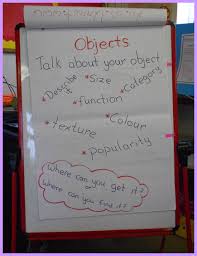 Objects
Talk about your object
Describe it
*Size
*Category
*function
*texture
*Colour
*popularity
Where can you get it?
or
Where can you find it?